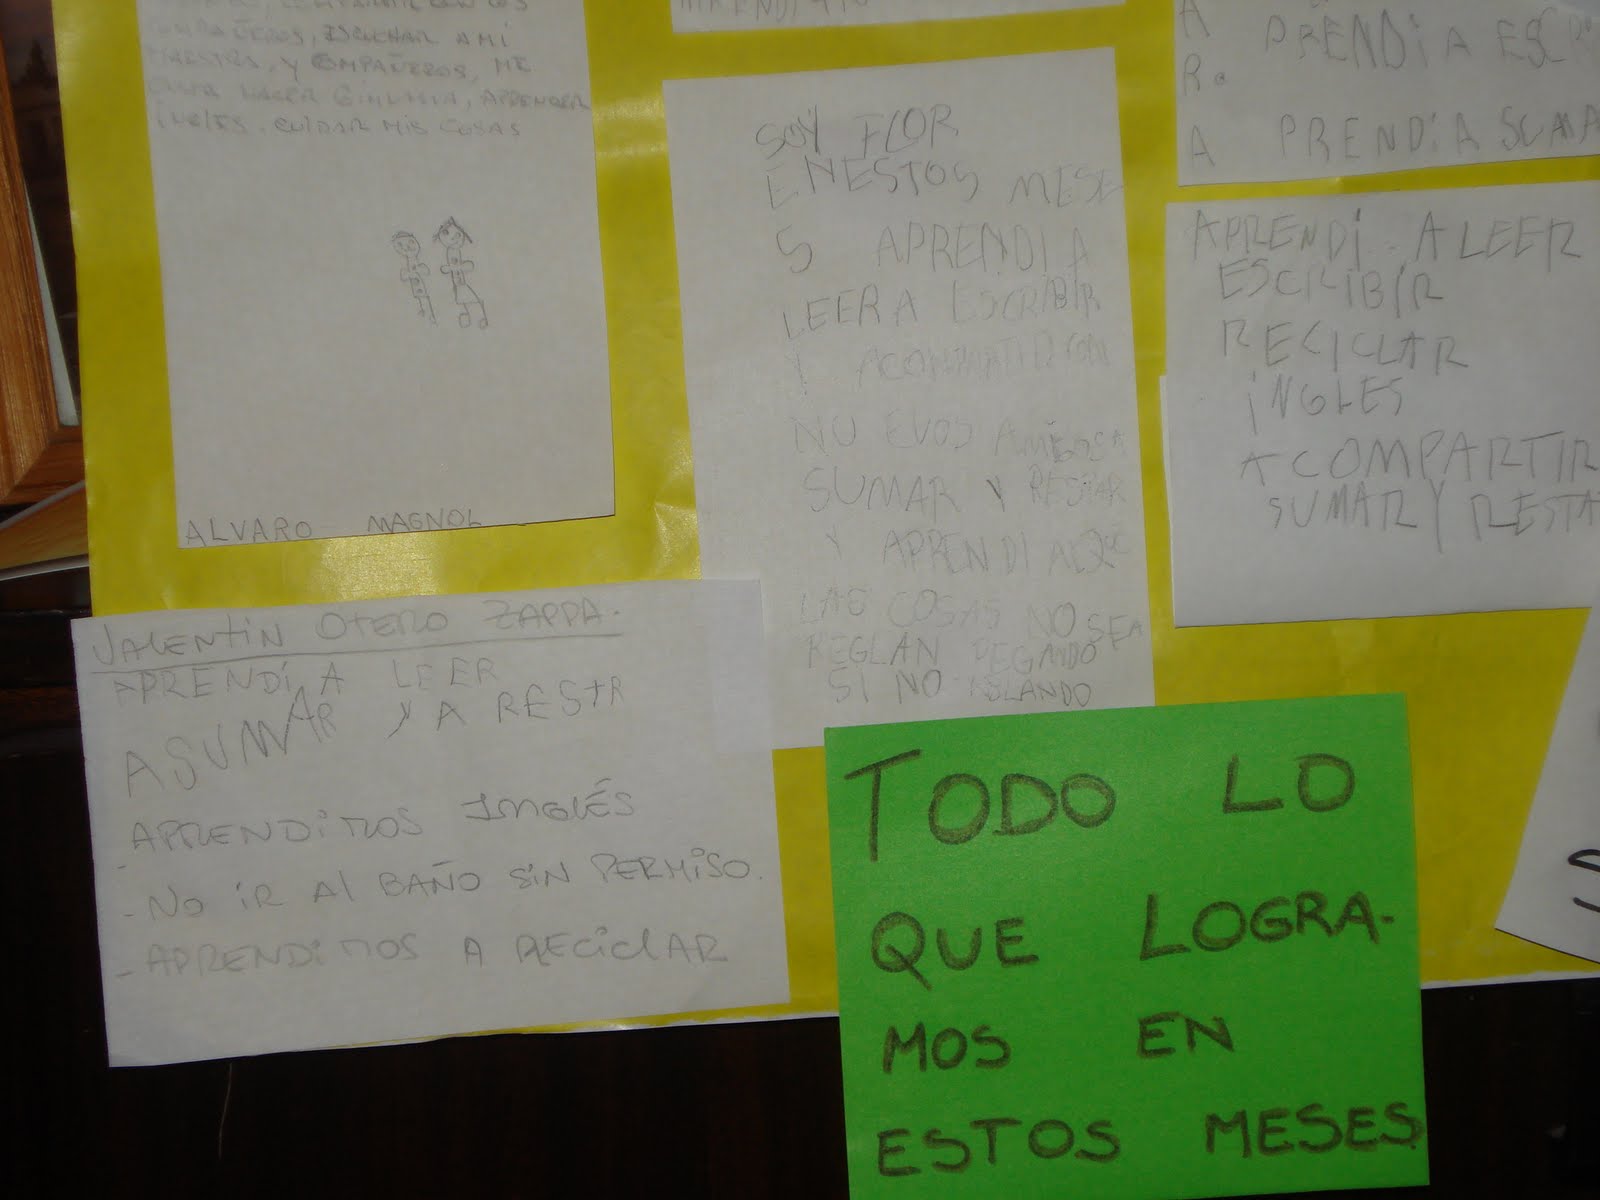 COMPAÑEROS, ESCUCHAR A MI
MAESTRA, Y COMPAÑEROS, ME
HACER GIMNASIA, APRENDER
INGLES. CUIDAR MIS COSAS
ALVARO MAGNOL
SOY FLOR
ENESTOS MESE
S APRENDI A
LEER A ESCRIBIR
Y ACOMPARTIR CON
NU EVOS AMIGOS A
SUMAR Y RESTAR
Y APRENDI A QUE
LAS COSAS NO SE A
REGLAN PEGANDO
SI NO ABLANDO
A PRENDI A ESCRI
R.
A PRENDI A SUMA
APRENDI A LEER
ESCRIBIR
RECICLAR
INGLES
A COMPARTIR
SUMAR Y RESTA
VALENTIN OTERO ZAPPA.
APRENDI A LEER
A SUMAR Y A RESTR
APRENDIMOS INGLÉS
- NO IR AL BAÑO SIN PERMISO.
- APRENDIMOS A RECICLAR
TODO LO
QUE LOGRA-
MOS EN
ESTOS MESES